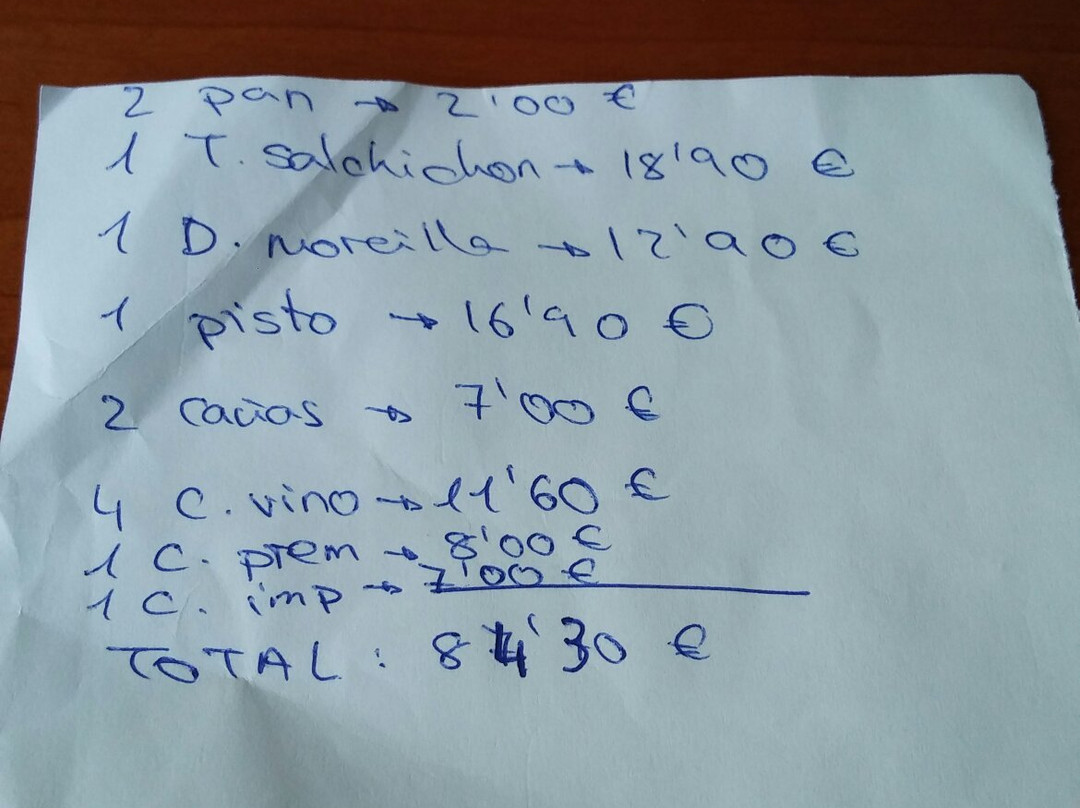 2 pan → 2'00 €
1 T. salchichon → 18'90 €
1 D. morcilla → 12'90 €
1 pisto → 16'90 €
2 cañas → 7'00 €
4 C. vino → 11'60 €
1 C. prem → 8'00 €
1 C. imp → 7'00 €
TOTAL : 84'30 €